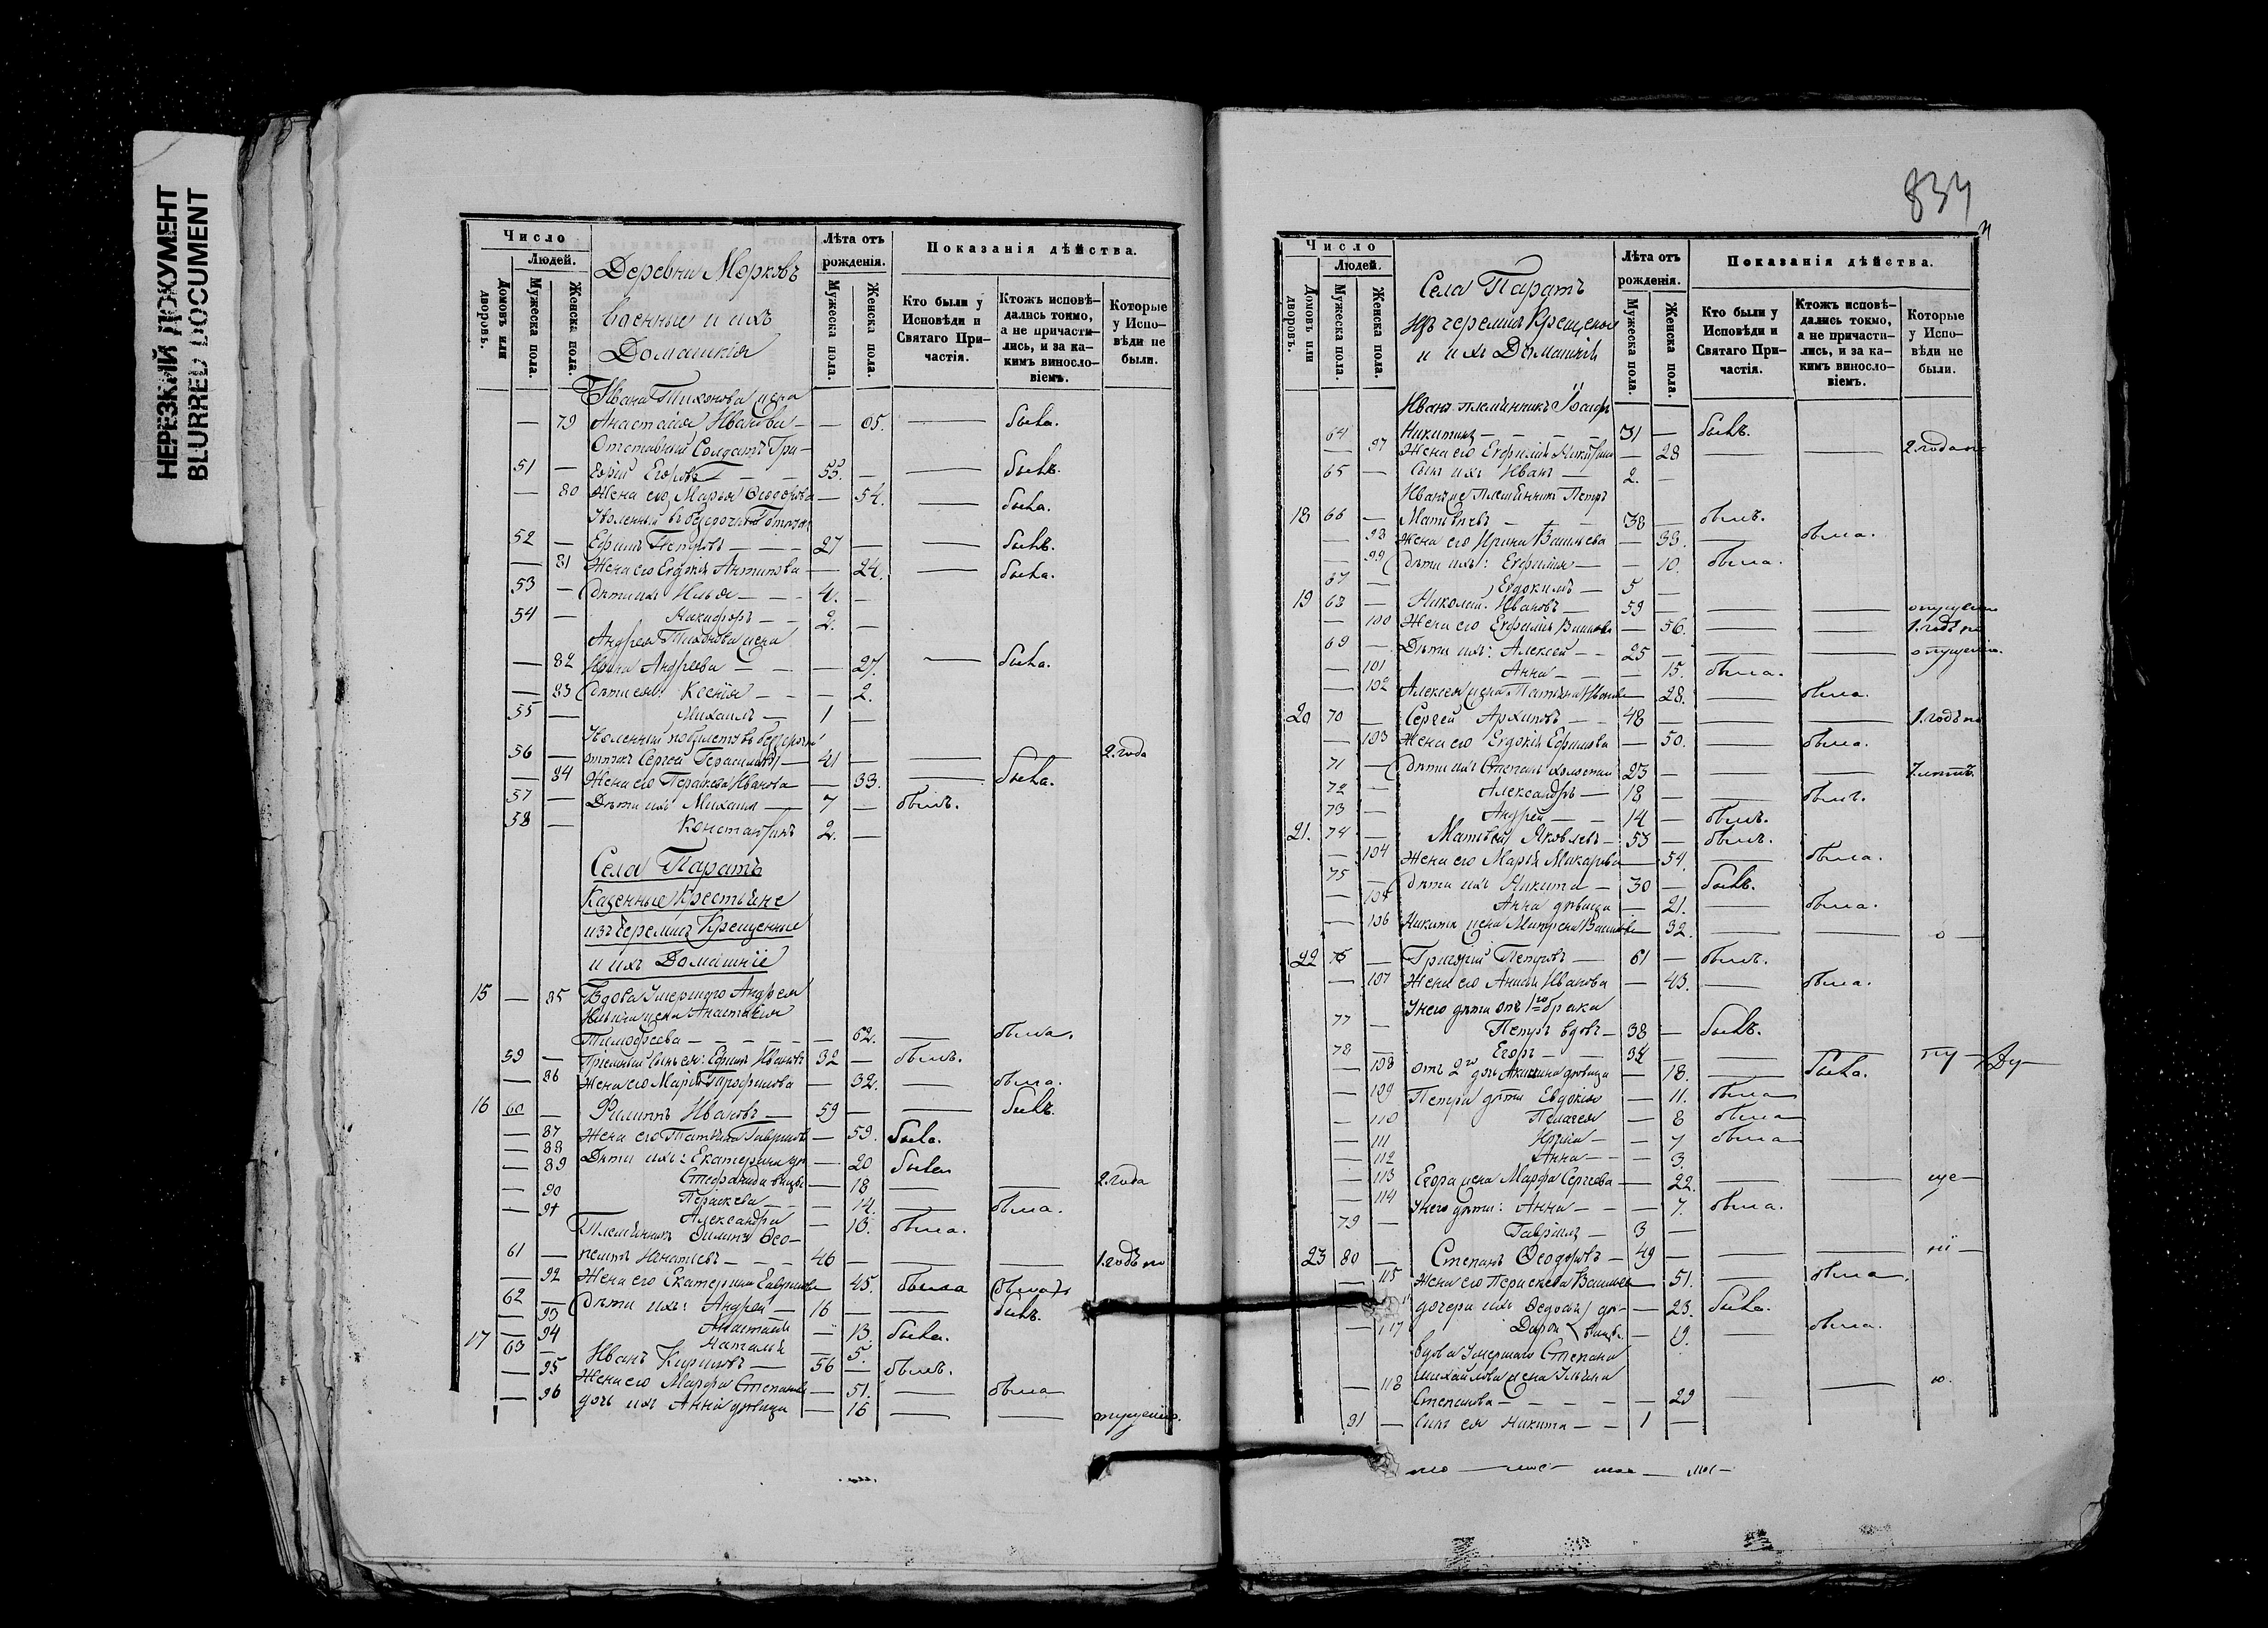 НЕРЕЗКИЙ ДОКУМЕНТ
BLURRED DOCUMENT
Число
Людей.
Домовъ или дворовъ.
Мужеска пола.
Женска пола.
Деревни Морковъ
военные и ихъ
Домашнія
Лѣта отъ рожденія.
Мужеска пола.
Женска пола.
Показанія дѣйства.
Кто были у Исповѣди и Святаго Причастія.
Ктожъ исповѣдались токмо, а не причастились, и за какимъ винословіемъ.
Которые у Исповѣди не были.
Ивана Тихонова жена
— 79 Анастасія Иванова — — 65. — была.
Отставный Солдатъ Гри-
51 — горій Егоровъ — — 55. — — былъ.
— 80 Жена его Марья Ѳеодорова — 54. — была.
Уволенный въ безсрочный отпускъ
52 — Ефимъ Петровъ — — — 27 — — былъ.
— 81 Жена его Евдокія Антипова — 24. — была.
53 — Дѣти ихъ Илья — — — 4. —
54 — Никифоръ — — 2. —
Андрея Тихонова жена
— 82 Ирина Андреева — — — 27. — была.
— 83 Дѣти ея: Ксенія — — — 2.
55 — Михаилъ — 1 —
56 — Сергей Герасимовъ — 41 — — — 2. года
— 84 Жена его Параскева Иванова — 33. — была.
57 — Дѣти ихъ Михаилъ — 7 — былъ.
58 — Константинъ 2. —
Села Паратъ
Казенные Крестьяне
изъ Черемисъ Крещенные
и ихъ Домашніе
15 — 85 Вдова Умершаго Андрея
Ильина жена Анастасія
Тимофеева — — — — — 62. — была.
59 — Пріемный сынъ ея: Ефимъ Ивановъ 32 — былъ.
— 86 Жена его Марья Трофимова — 32. — была.
16 60 — Филиппъ Ивановъ — 59 — — былъ.
— 87 Жена его Татьяна Гаврилова — 59. была.
— 88 Дѣти ихъ: Екатерина — 20 была
— 89 Стефанида — 18 — — 2. года
— 90 Параскева — — — 14. — была.
— 91 Александра — 13. была.
Племянникъ Филиппа Ѳео-
61 — пемптъ Игнатьевъ — — — 46 — — — 1. годъ
— 92 Жена его Екатерина Гаврилова — 45. была
62 — Дѣти ихъ: Андрей — 16 — — былъ.
— 93 Анастасія — 13. была.
— 94 Наталья — 5.
17 63 — Иванъ Кириловъ — 56 — былъ.
— 95 Жена его Марфа Степанова — 51. — была
— 96 дочь ихъ Анна дѣвица — 16 — — опущенію.
834
Число
Людей.
Домовъ или дворовъ.
Мужеска пола.
Женска пола.
Села Паратъ
изъ черемисъ Крещеные
и ихъ Домашніи
Лѣта отъ рожденія.
Мужеска пола.
Женска пола.
Показанія дѣйства.
Кто были у Исповѣди и Святаго Причастія.
Ктожъ исповѣдались токмо, а не причастились, и за какимъ винословіемъ.
Которые у Исповѣди не были.
Ивана племянникъ
64 Никитинъ — — — 31 — былъ.
— 97 Жена его — 28 — — 2. года
65 — Сынъ ихъ Иванъ — 2. —
Ивана же племянникъ Петръ
18 66 — Матвѣевъ — — — 38 — былъ.
— 98 Жена его Ирина Васильева — 33. — была.
— 99 Дѣти ихъ: Евфимія — — 10. была.
67 — Евдокимъ — 5 —
19 68 — Николай Ивановъ — 59 — — — опущенію
— 100 Жена его Евфимія — 56. — — 1. годъ
69 — Дѣти ихъ: Алексей — — 25 — — — опущенію.
— 101 Анна — — — 15. была.
— 102 Алексея жена Татьяна Иванова — 28. — была.
20 70 — Сергей Архиповъ — — 48 — — — 1. годъ
— 103 Жена его Евдокія Ефимова — 50. — была.
71 — Дѣти ихъ Степанъ холостый 23 — — — 7. лѣтъ.
72 — Александръ — 18 — — былъ.
73 — Андрей — — 14 — былъ.
21. 74 — Матвѣй Яковлевъ — 53 — былъ.
— 104 Жена его Марія Макарова — 54. — была.
75 — Дѣти ихъ Никита — 30 — былъ.
— 105 Анна дѣвица — 21. — была.
— 106 Никиты жена Матрена — 32. — —
22 76 — Григорій Петровъ — 61 — былъ.
— 107 Жена его Анисья Иванова — 43. — была.
У него дѣти отъ 1го брака
77 — Петръ вдовъ — 38 — былъ.
78 — Егоръ — — 34 — — —
— 108 отъ 2го дочь дѣвица — 18. — была.
— 109 Петра дѣти Евдокія — 11. была
— 110 Пелагея — 8 была
— 111 Ирина — — 7 была
— 112 Анна — — — 3.
— 113 Егора жена Марфа Сергеева — 22. — —
— 114 У него дѣти: Анна — — — 7. была.
79 — Гавріилъ — 3 —
23 80 — Степанъ Ѳеодоровъ — 49 — — —
— 115 Жена его Параскева — 51. — была.
дочери ихъ Ѳедосья — 23. была.
— 117 Дарья — 19. — была.
вдова Умершаго Степана
— 118 Михайлова жена Ульяна
Степанова — — — — — 29 — —
81 — Сынъ ея Никита — — 1 —